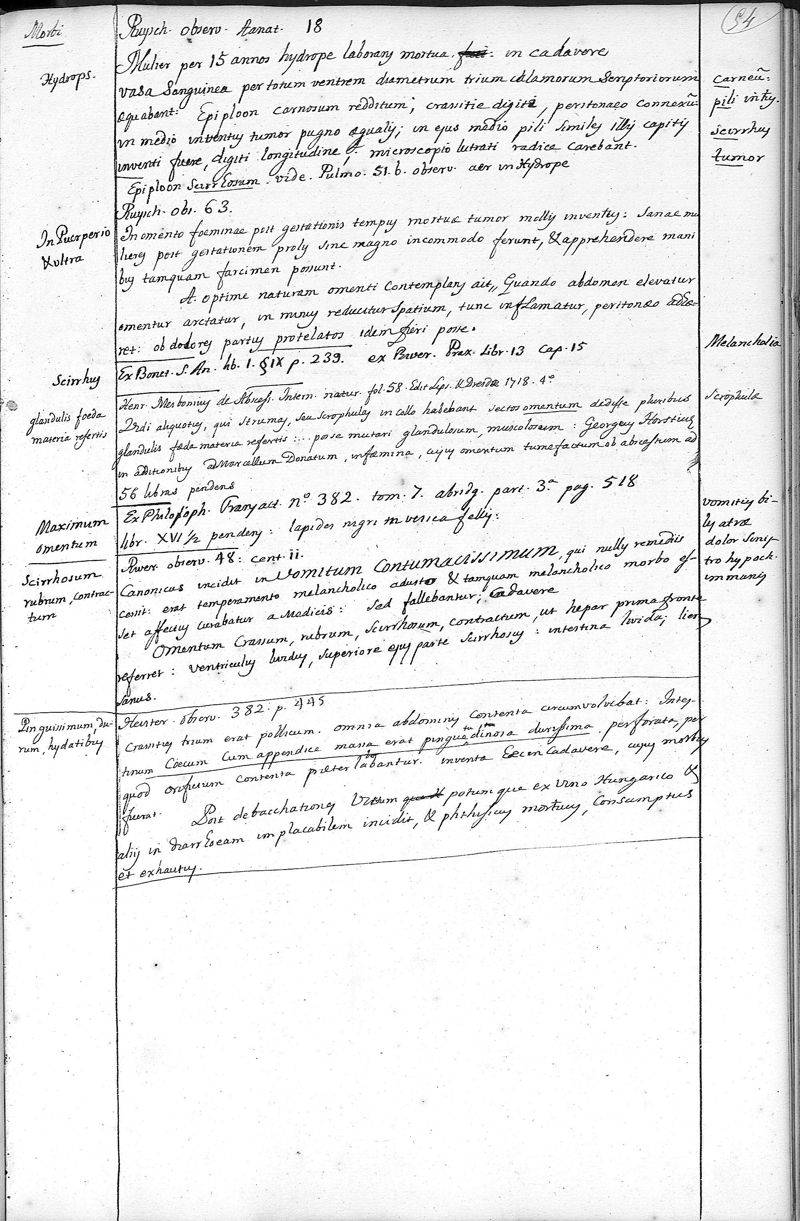 54
Morbi
Ruysch. observ. Aanat. 18
Hydrops.
Mulier per 15 annos hydrope laborans mortua. in cadavere
vasa Sanguinea per totum ventrem diametrum trium calamorum Scriptoriorum
æquabant: Epiploon carnosum redditum; crassitie digiti, peritonaeo connexũ
in medio inventus tumor pugno æqualis; in ejus medio pili similes illis capitis
inventi fuere, digiti longitudine; microscopio lustrati radice carebant.
Epiploon Scirrhosum. vide. Pulmo. 51. b. observ. aer in Hydrope
carneũ:
pili intus.
scirrhus
tumor
Ruysch. obs. 63.
In Puerperio
& ultra
In omento foeminae post gestationis tempus mortuæ tumor mollis inventus: Sanae mu
lieres post gestationem prolis sine magno incommodo ferunt, & apprehendere mani
bus tamquam farcimen possunt.
A. optime naturam omenti contemplans ait,, Quando abdomen elevatur
omentur arctatur, in minus reducitur Spatium, tunc inflamatur, peritonæo adhæ
ret: ob dolores partus protelatos idem fieri posse.
Ex Bonet. S. An. lib. 1. § IX p. 239. ex River. Prax. Libr. 13 Cap. 15
Melancholia
Scirrhus
glandulis foeda
materia refertis
Henr. Meibomius de Abscess. Intern. natur. fol. 58. Edit. Lips. & Dresdæ 1718. 4.º
Vidi aliquotes, qui Strumas, seu Scrophulas in collo habebant sectos omentum dedisse pluribus
glandulis fœda materia refertis: ... posse mutari glandulosum, musculosum: Georgius Horstius
in additionibus ad Marcellum Donatum, in fœmina, cujus omentum tumefactum ob abscessum ad
56 libras pendens
Scrophulæ
Ex Philosoph. Transact. nº 382. tom. 7. abridg. part. 3.ª pag. 518
Maximum
omentum
libr. XVI½ pendens: lapides nigri in vesica fellis:
River. observ. 48: cent. ii.
vomitus bi-
lis atræ
dolor sinis-
tro hypoch.
immanis
Scirrhosum
rubrum, contrac-
tum
Canonicus incidit in Vomitum Contumacissimum, qui nullis remediis
cessit: erat temperamento melancholico adusto & tanquam melancholico morbo es-
set affectus curabatur a Medicis: sed fallebantur; Cadavere
Omentum Crassum, rubrum, Scirrhosum, contractum, ut hepar prima fronte
referret: ventriculus lividus, superiore ejus parte Scirrhosus: intestina livida; lien
sanus.
Pinguissimum, du-
rum, hydatibus
Heister. observ. 382. p. 445
Crassities trium erat pollicum. omnia abdominis contenta circumvolvebat: Intes-
tinum Coecum Cum appendice massa erat pinguedinosa durissima. perforata, per
quod orificium contenta præterlabantur. inventa hæc in Cadavere, cujus morbus
fuerat. Post debacchationes Vitum potumque ex vino Hungarico &
aliis in diarrhoeam implacabilem incidit, & phthysicus mortuus, Consumptus
et exhaustus.